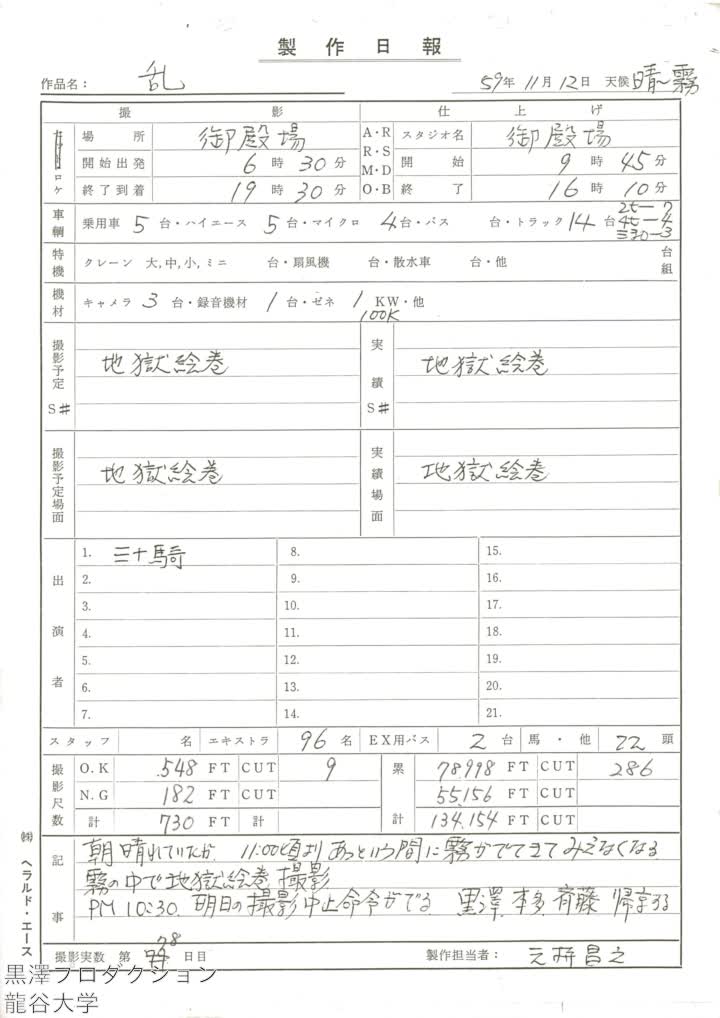 製作日報
作品名： 乱 59年 11月 12日 天候 晴〜霧
撮影 仕上げ
ロケ 場所 御殿場 A・R R・S M・D O・B スタジオ名 御殿場
開始出発 6時 30分 開始 9時 45分
終了到着 19時 30分 終了 16時 10分
車輌 乗用車 5台・ハイエース 5台・マイクロ 4台・バス 台・トラック 14台 2t—7
4t—4
特機 クレーン 大,中,小,ミニ 台・扇風機 台・散水車 台・他 台組
機材 キャメラ 3台・録音機材 1台・ゼネ 1 KW・他
100K
撮影予定 S# 地獄絵巻 実績 S# 地獄絵巻
撮影予定場面 地獄絵巻 実績場面 地獄絵巻
出演者
1. 三十騎 8. 15.
2. 9. 16.
3. 10. 17.
4. 11. 18.
5. 12. 19.
6. 13. 20.
7. 14. 21.
スタッフ 名 エキストラ 96名 EX用バス 2台 馬・他 22頭
撮影尺数 O.K 548 FT CUT 9 累計 78,998 FT CUT 286
N.G 182 FT CUT 55,156 FT CUT
計 730 FT 計 134,154 FT CUT
記事 朝晴れていたが 11:00頃より あっという間に霧がでてきてみえなくなる
霧の中で地獄絵巻撮影
PM 10:30. 明日の撮影中止命令がでる 黒澤、本多、斉藤 帰京する
撮影実数 第 78 日目 製作担当者：
㈱ヘラルド・エース
黒澤プロダクション
龍谷大学